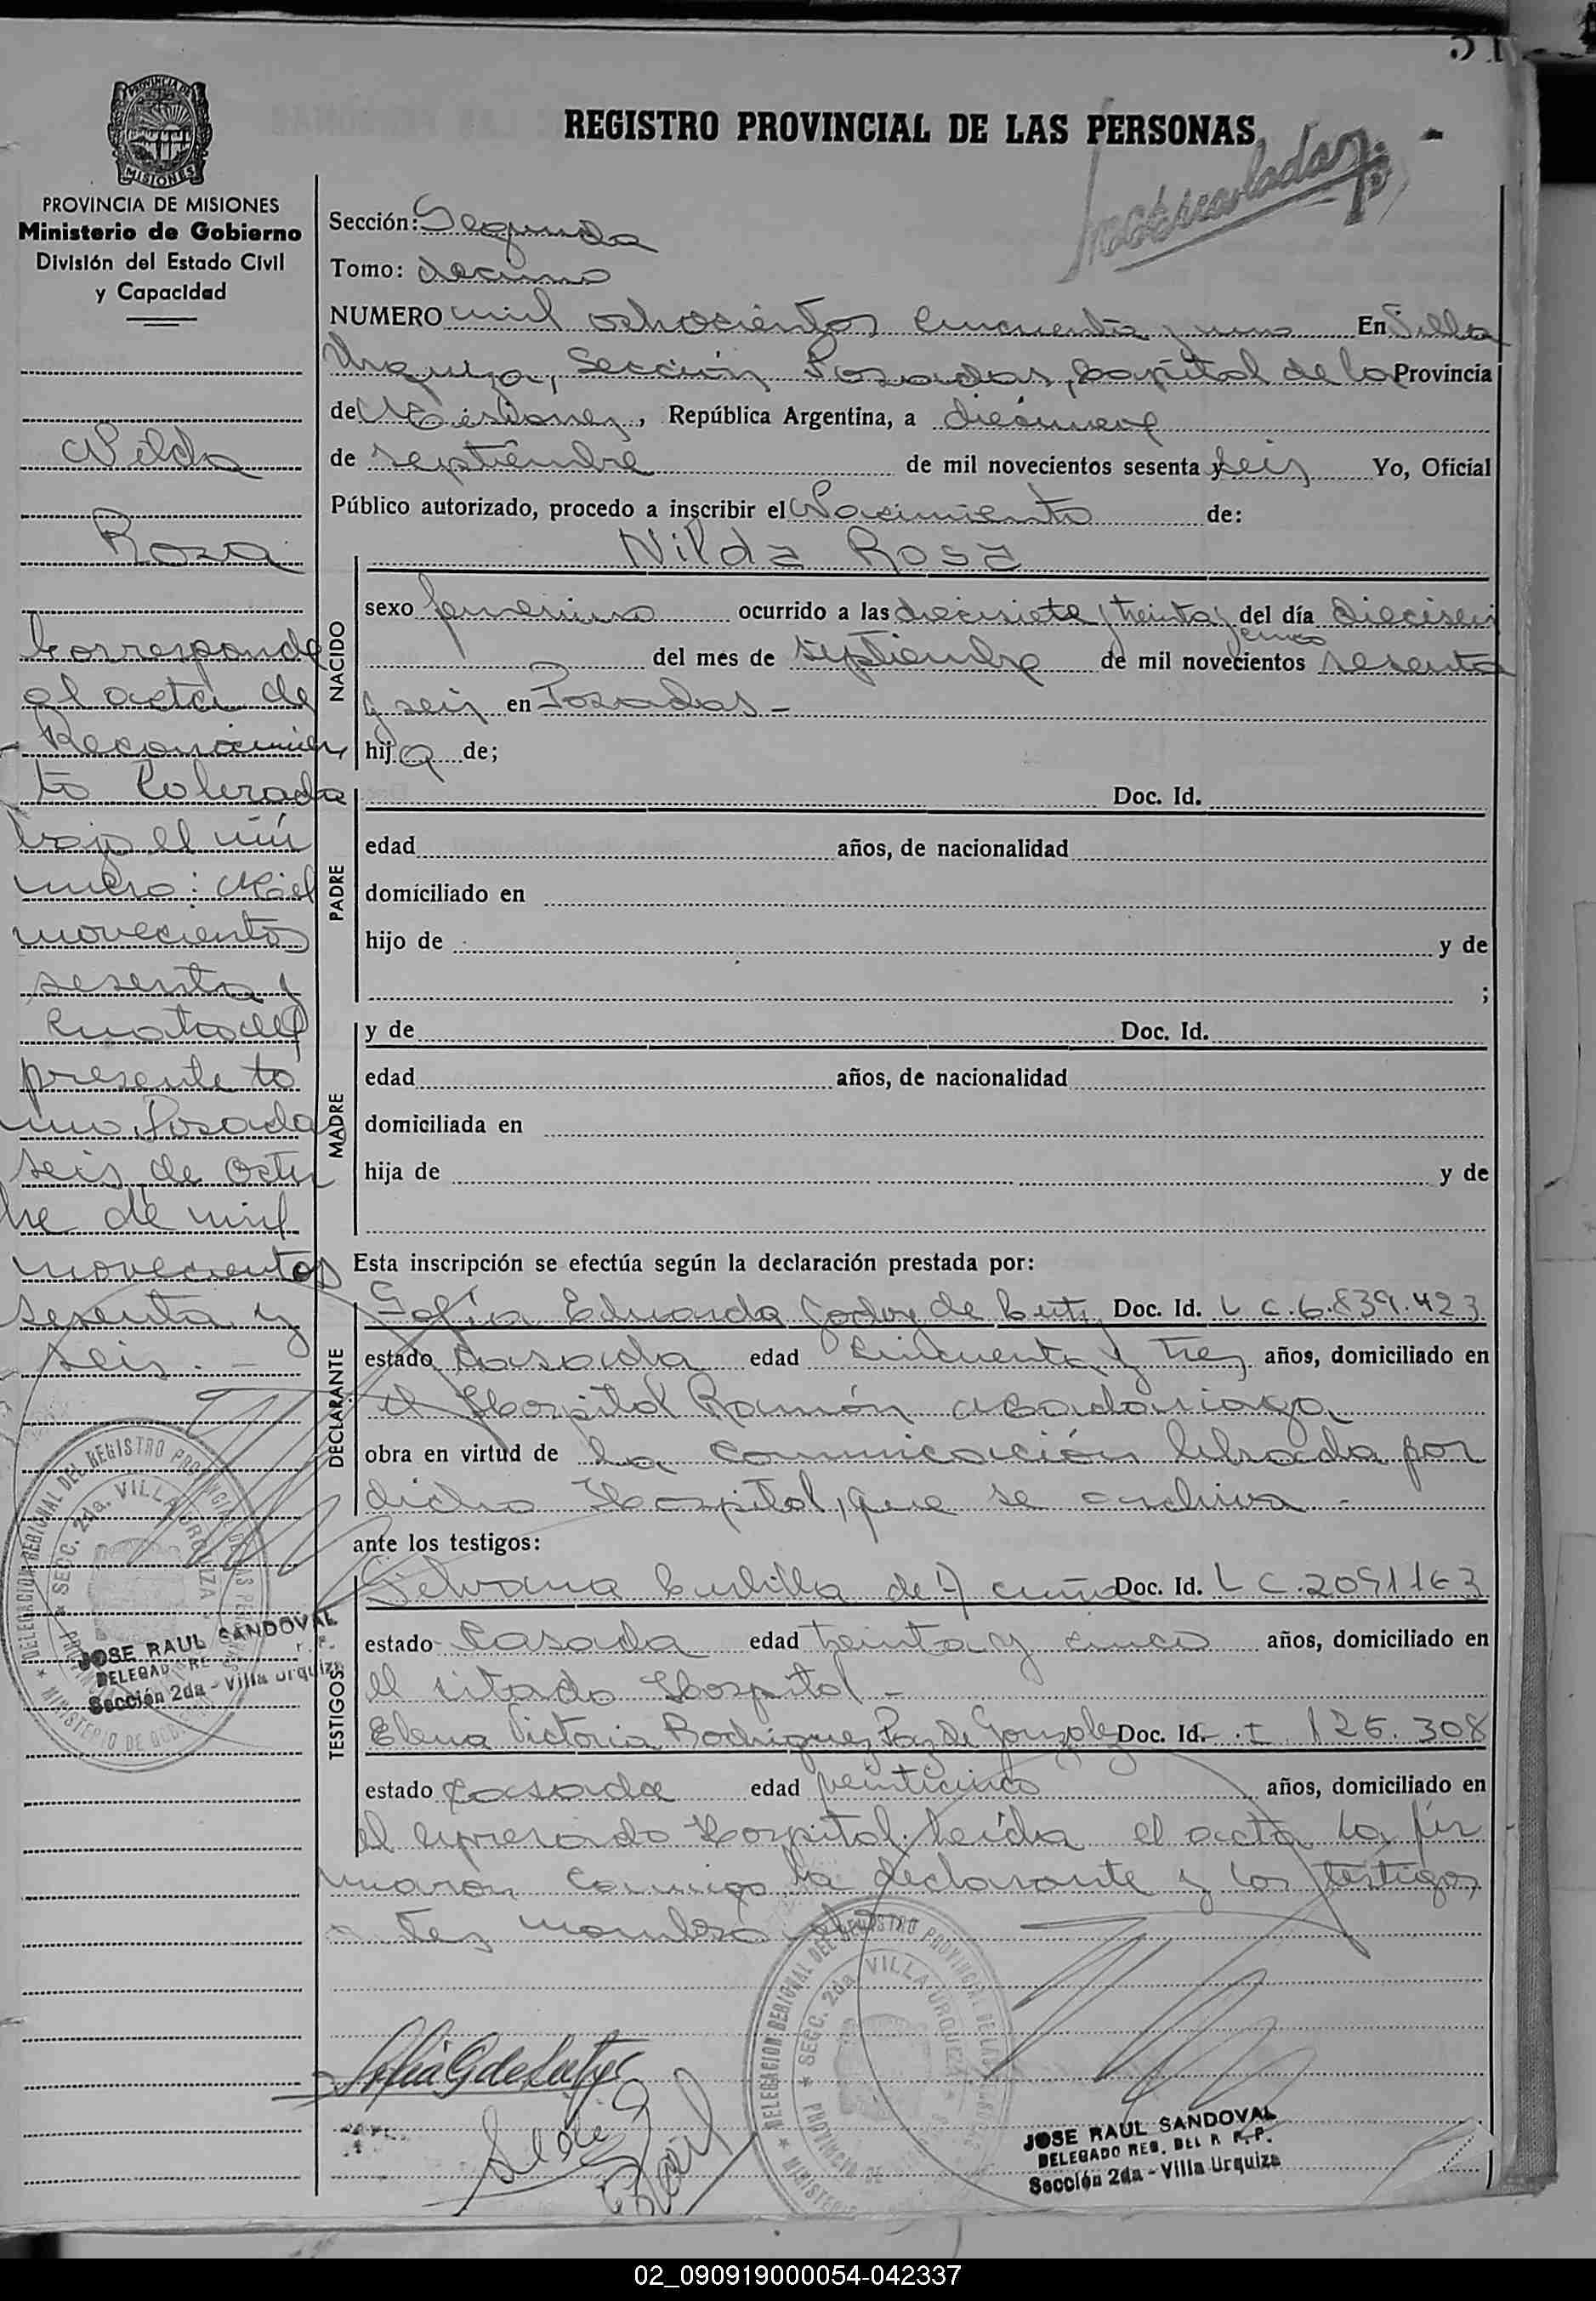 51
REGISTRO PROVINCIAL DE LAS PERSONAS
PROVINCIA DE MISIONES
MISIONES
PROVINCIA DE MISIONES
Ministerio de Gobierno
División del Estado Civil
y Capacidad
Nilda
Rosa
Corresponde
al acta de
Reconocimien
to labrada
bajo el nú
mero: Mil
novecientos
sesenta y
cuatro del
presente to
mo. Posadas
seis de octu
bre de mil
novecientos
sesenta y
seis. -
DELEGACION REGIONAL DEL REGISTRO PROVINCIAL DE LAS PERSONAS
SECC. 2da. VILLA URQUIZA
MINISTERIO DE GOBIERNO
JOSE RAUL SANDOVAL
DELEGADO REG.
Sección 2da - Villa Urquiza
Matriculada
Sección: Segunda
Tomo: decimo
NUMERO mil ochocientos cincuenta y uno En Villa
Urquiza, Sección Posadas, Capital de la Provincia
de Misiones, República Argentina, a diecinueve
de septiembre de mil novecientos sesenta y seis Yo, Oficial
Público autorizado, procedo a inscribir el Nacimiento de:
Nilda Rosa
NACIDO
sexo femenino ocurrido a las diecisiete y treinta y cinco del día dieciseis
del mes de septiembre de mil novecientos sesenta
y seis en Posadas -
hija de;
PADRE
Doc. Id.
edad años, de nacionalidad
domiciliado en
hijo de y de
;
MADRE
y de Doc. Id.
edad años, de nacionalidad
domiciliada en
hija de y de
Esta inscripción se efectúa según la declaración prestada por:
DECLARANTE
Sofía Eduarda Godoy de Doc. Id. L C. 6.839.423
estado Casada edad Cincuenta y tres años, domiciliado en
el Hospital Ramón Madariaga
obra en virtud de la comunicación librada por
dicho Hospital, que se archiva -
ante los testigos:
TESTIGOS
de Acuña Doc. Id. L C. 2091163
estado Casada edad treinta y cinco años, domiciliado en
el citado Hospital -
Elena Victoria Rodriguez Paz de Gonzalez Doc. Id. C. I 126.308
estado casada edad veinticinco años, domiciliado en
el expresado Hospital. Leída el acta la fir
maron conmigo la declarante y los testigos
antes nombrados
DELEGACION REGIONAL DEL REGISTRO PROVINCIAL DE LAS PERSONAS
SECC. 2da. VILLA URQUIZA
JOSE RAUL SANDOVAL
DELEGADO REG. DEL R. P. P.
Sección 2da - Villa Urquiza
02_090919000054-042337